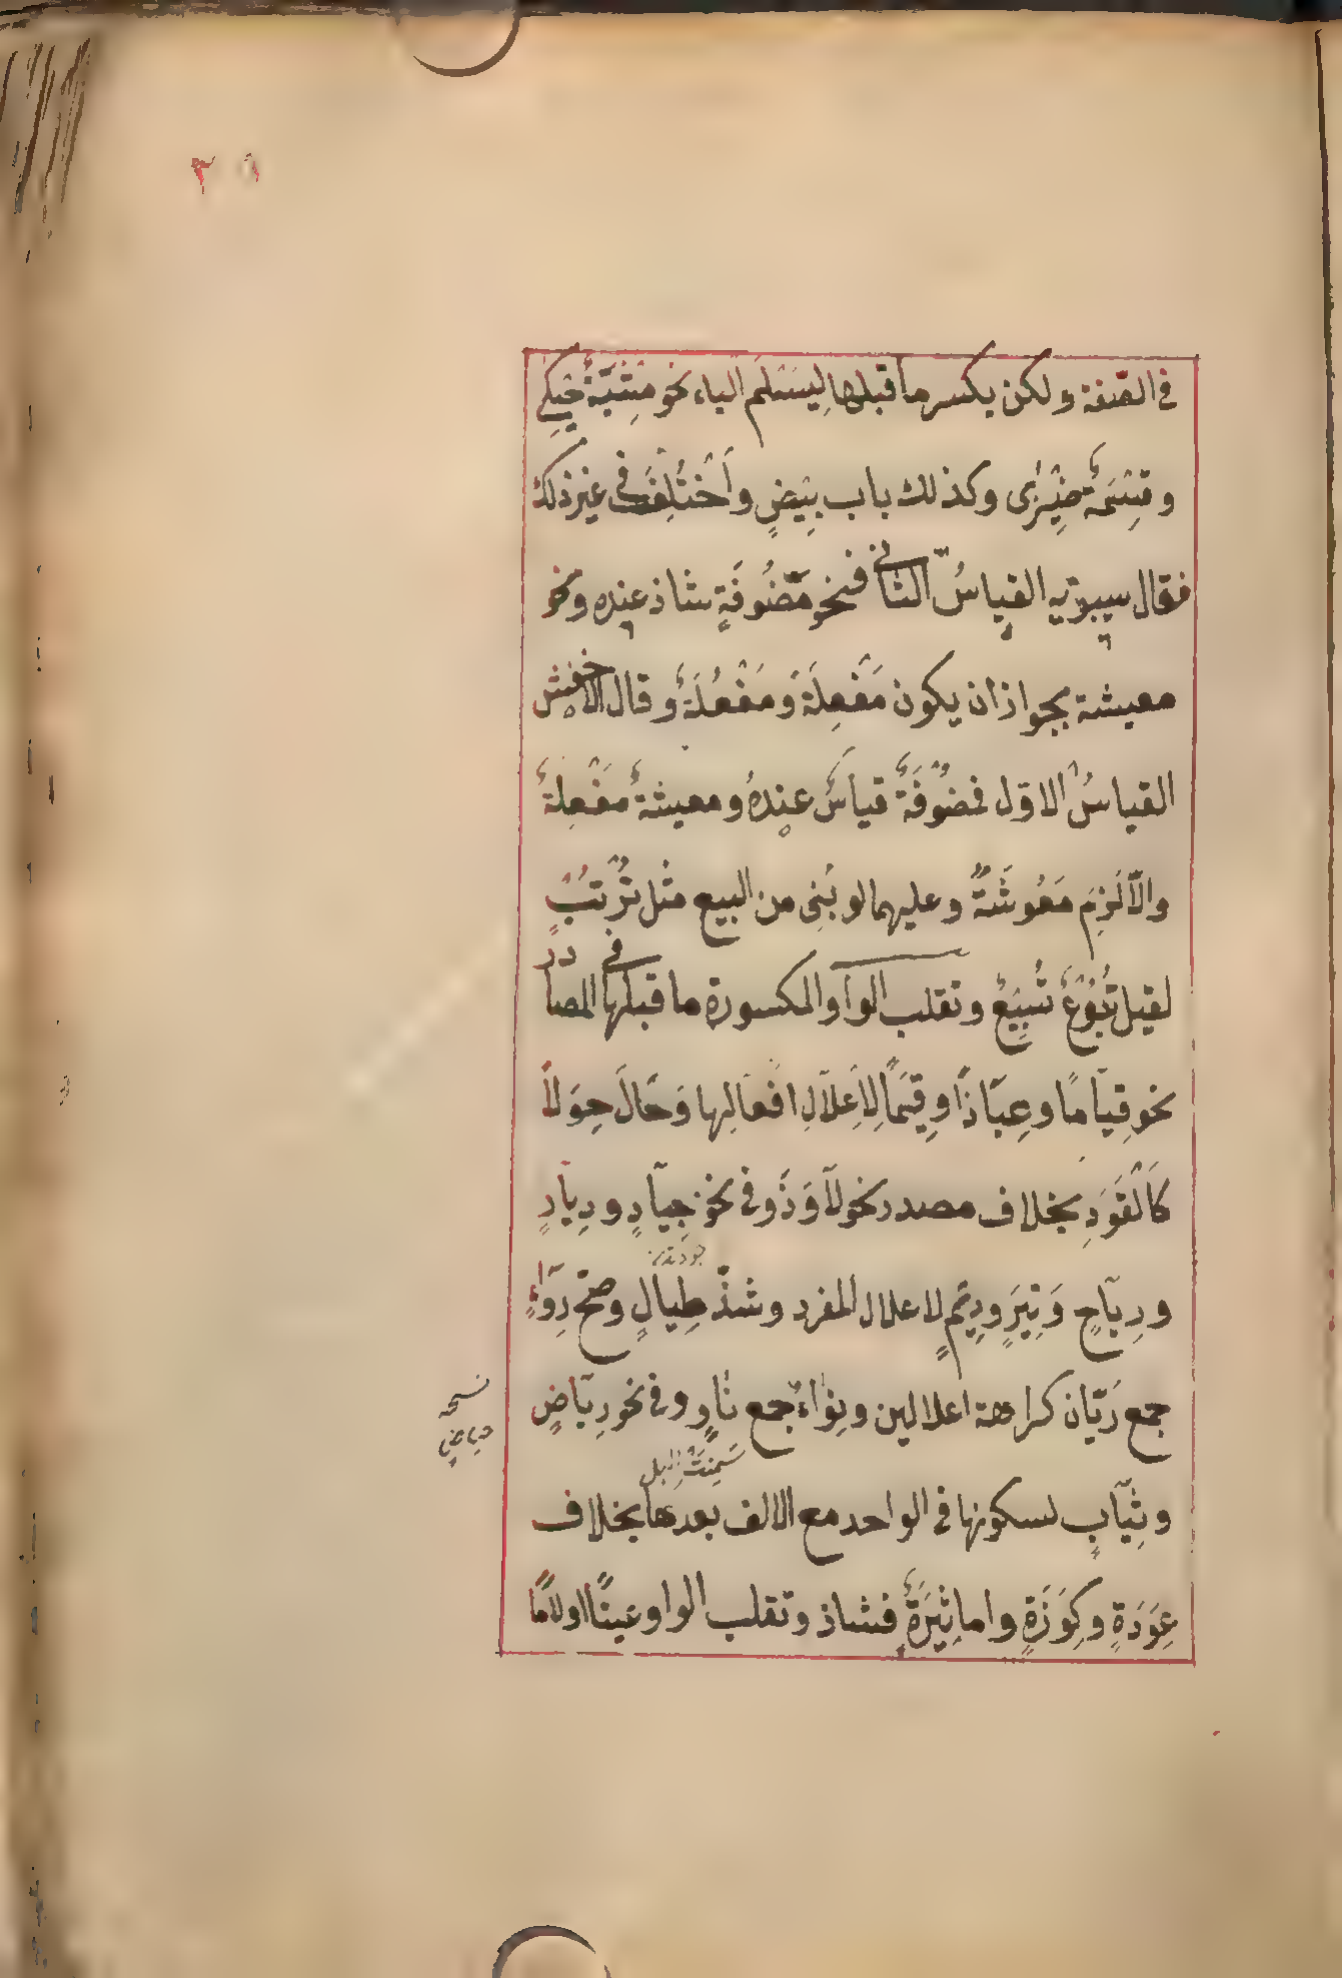 ٣١
في الصّفة ولكن يكسر ما قبلها لِيَسْلَمَ الياء نحو مِشْيَةٌ حِيكَى
وقِسْمَةٌ ضِيْزَى وكذلك باب بِيْضٍ وَاُخْتُلِفَ في غير ذلك
فقال سيبويه القياسُ الثاني فنحو مَضُوفَةٍ شاذ عنده ونحو
معيشة يجواز ان يكون مَفْعِلَة وَمَفْعُلَةً وقال الاخفش
القياسُ الاول فمضُوفَةٌ قياسٌ عنده ومعيشةٌ مَفْعِلَةٌ
والّا لَزِمَ مَعُوشَةٌ وعليهما لو بُنِي من البيع مثل تُرْتُبٍ
لقيل تُبُوْعٌ تُبِيْعٌ وتقلب الواو المكسورة ما قبلها في المصادر
نحو قِيَامًا وعِيَاذًا وقِيَمًا لِاِعْلَالِ افعالِها وَحَالَ حِوَلًا
كَالْقَوَدِ بخلاف مصدر نحو لَاوَذَ وفي نحو جِيَادٍ ودِيَارٍ
جودتدن
ورِيَاحٍ وَتِيَرٍ ودِيَمٍ لاعلال المفرد وشذّ طِيَالٍ وصحّ رِوَاءٍ
جمع رَيّان كراهة اعلالين ونِوَاءٌ جمع نَاوٍ وفي نحو رِيَاضٍ
نسخه
حياض
سَمِنَتْ ابل
وثِيَابٍ لسكونها في الواحد مع الالف بعدها بخلاف
عِوَدَةٍ وكِوَزَةٍ واما ثِيَرَةٌ فشاذ وتقلب الواو عينًا اولامًا